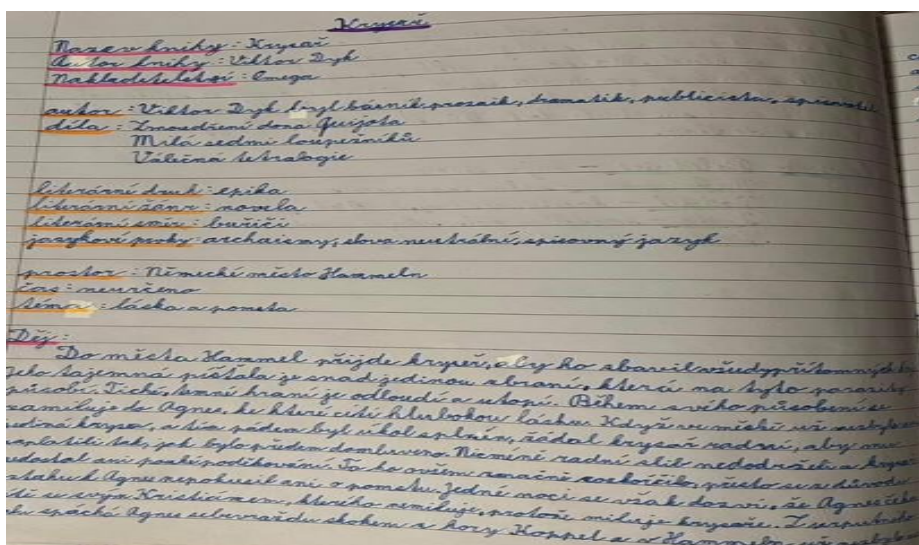 Krysař
Název knihy: Krysař
Autor knihy: Viktor Dyk
Nakladatelství: Omega
autor: Viktor Dyk byl básník, prozaik, dramatik, publicista, spisovatel
díla: Zmoudření dona Quijota
Milá sedmi loupežníků
Válečná tetralogie
literární druh: epika
literární žánr: novela
literární směr: buřiči
jazykové prvky: archaismy, slova neutrální, spisovný jazyk
prostor: Německé město Hammeln
čas: neurčeno
téma: láska a pomsta
Děj:
Do města Hammel přijde krysař, aby ho zbavil všudypřítomných
Jeho tajemná píšťala je snad jedinou zbraní, která na tyto parazity
působí. Tiché, temné hraní je odloudí a utopí. Během svého působení se
zamiluje do Agnes, ke které cítí hlubokou lásku. Když ve městě už nezbyla
jediná krysa, a tím pádem byl úkol splněn, žádal krysař radní, aby mu
zaplatili tak, jak bylo předem domluveno. Nicméně radní slib nedodrželi a krysař
nedostal ani pouhé poděkování. To ho ovšem značně rozhořčilo, přesto se z důvodu
vztahu k Agnes nepokusil ani o pomstu. Jedné noci se však dozví, že Agnes čeká
dítě se svým Kristiánem, kterého nemiluje, protože miluje krysaře. Z
spáchá Agnes sebevraždu skokem z hory Koppel a v Hammeln už